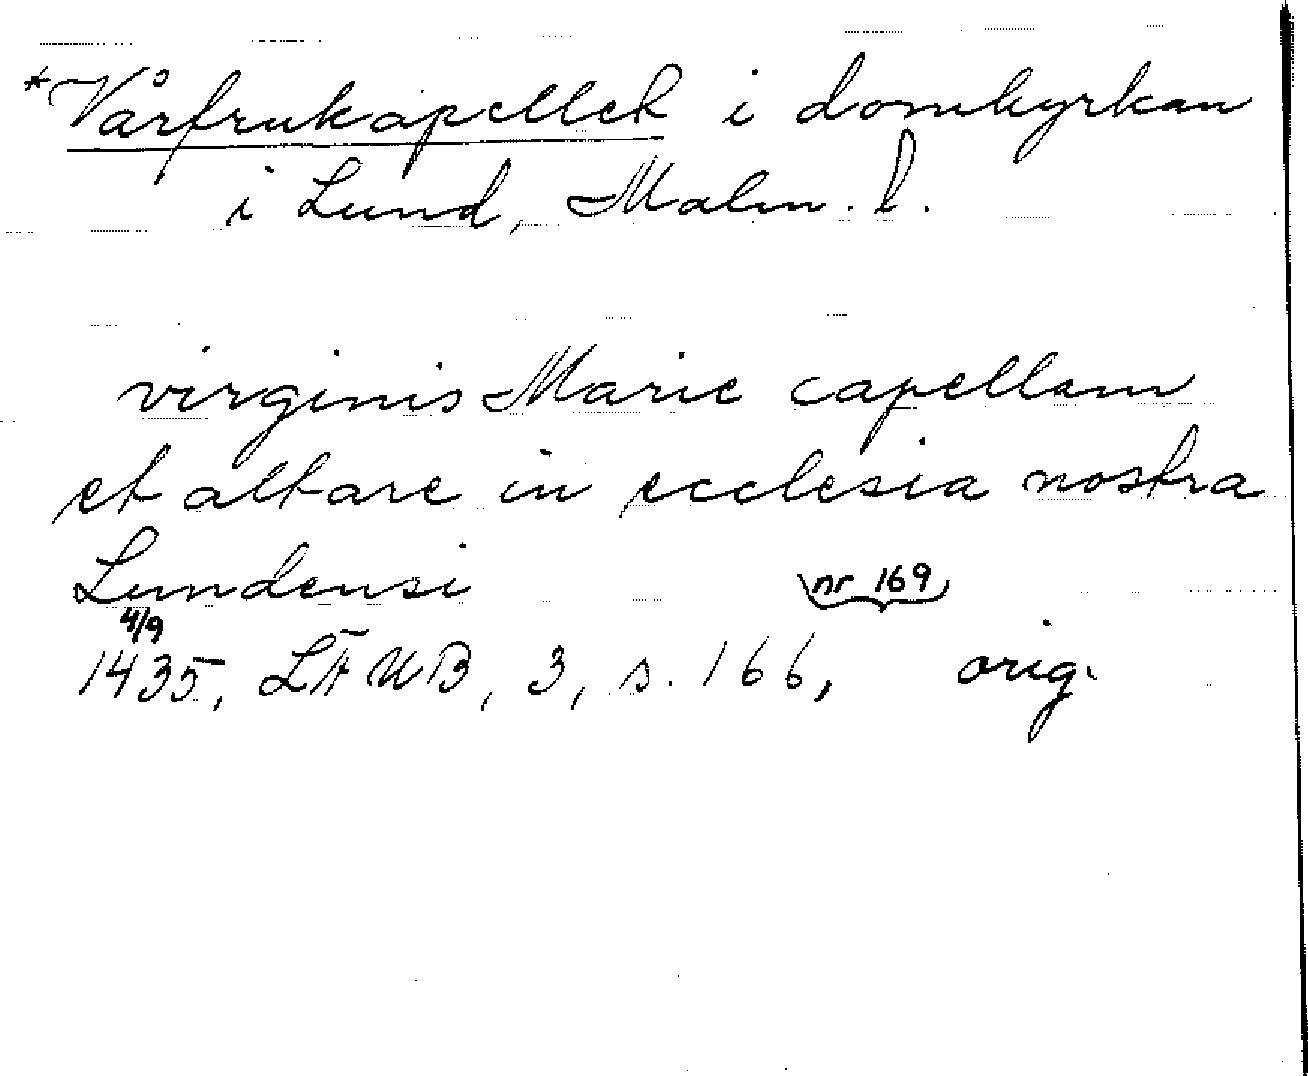 *Vårfrukapellet i domkyrkan
i Lund, Malm. l.
virginis Marie capellam
et altare in ecclesia nostra
Lundensi
nr 169
4/9
1435, LÄUB, 3, s. 166, orig.